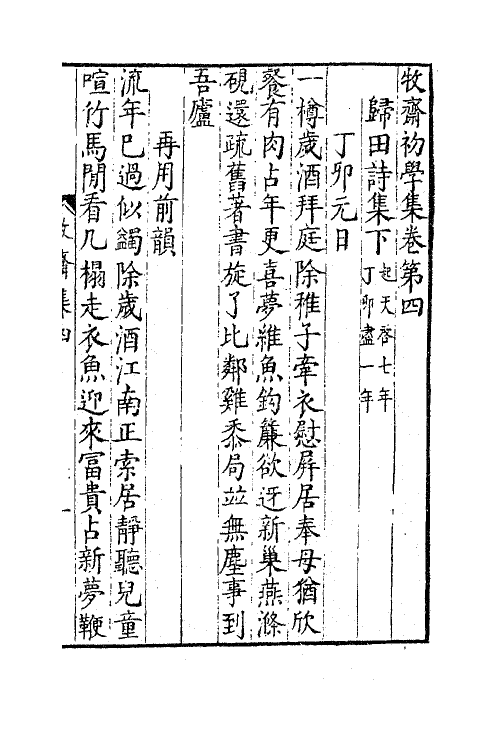 牧齋初學集卷第四
歸田詩集下起天啓七年丁卯盡一年
丁卯元日
一樽歲酒拜庭除稚子牽衣慰屏居奉母猶欣
餐有肉占年更喜夢維魚鈎簾欲迓新巢燕滌
硯還疏舊著書旋了比鄰雞黍局並無塵事到
吾廬
再用前韻
流年已過似蠲除歲酒江南正索居靜聽兒童
喧竹馬閒看几榻走衣魚迎來富貴占新夢鞭
牧齋集四
一